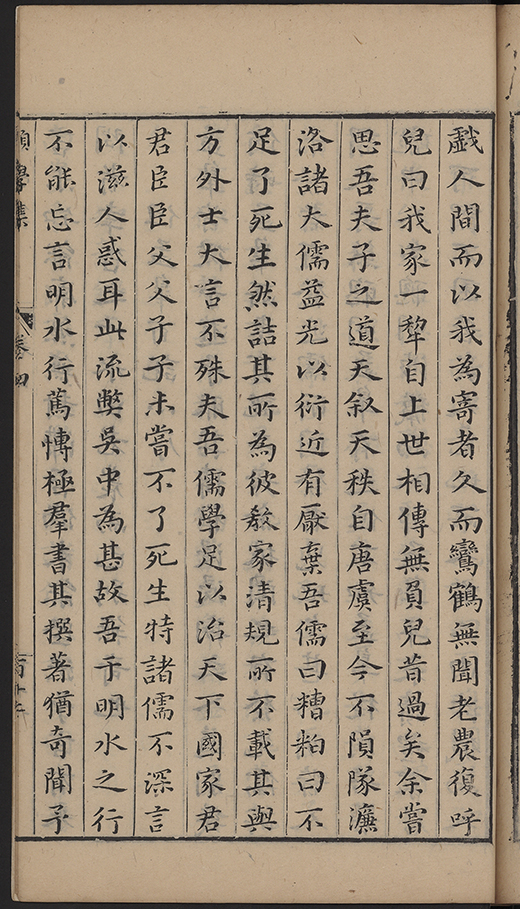 戲人間而以我為寄者久而鸞鶴無聞老農復呼
兒曰我家一犂自上世相傳無負兒昔過矣余嘗
思吾夫子之道天叙天秩自唐虞至今不隕隊濂
洛諸大儒益光以衍近有厭棄吾儒曰糟粕曰不
足了死生然詰其所為彼教家清規所不載其與
方外士大言不殊夫吾儒學足以治天下國家君
君臣臣父父子子未嘗不了死生特諸儒不深言
以滋人惑耳此流弊吳中為甚故吾于明水之行
不能忘言明水行篤慱極羣書其撰著猶奇聞予
學集
卷四